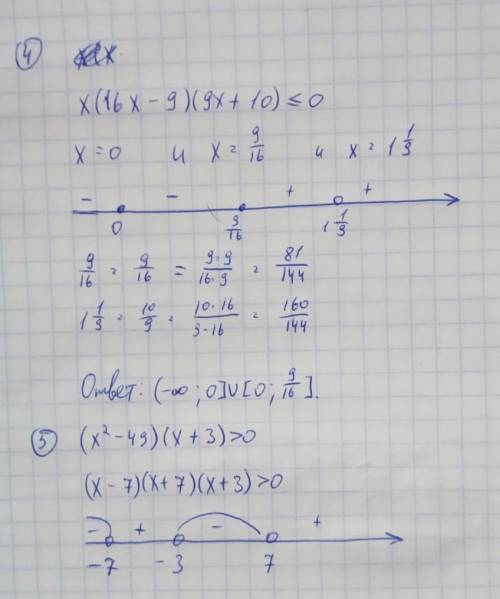 4
x(16x - 9)(9x + 10) ≤ 0
x = 0 и x = 9/16 и x = 1 1/9
- - + +
0 9/16 1 1/9
9/16 = 9/16 = 9·9/16·9 = 81/144
1 1/9 = 10/9 = 10·16/9·16 = 160/144
Ответ: (-∞; 0]∪[0; 9/16].
5 (x² - 49)(x + 3) > 0
(x - 7)(x + 7)(x + 3) > 0
- + - +
-7 -3 7